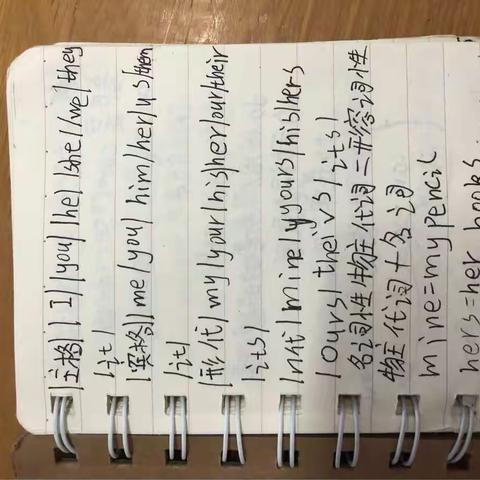 |主格| I |you| he| she|we|they
it|
|宾格|me|you| him|her|us|them
|it|
|形代|my|your|his|her|our|their
|its|
|n代|mine|yours|his|hers
|ours|theirs|its|
名词性物主代词=形容词性
物主代词+名词
mine=my pencil
hers=her books.